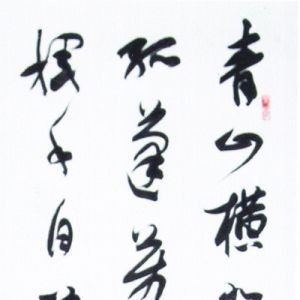 青山横
孤蓬萬
揮手自